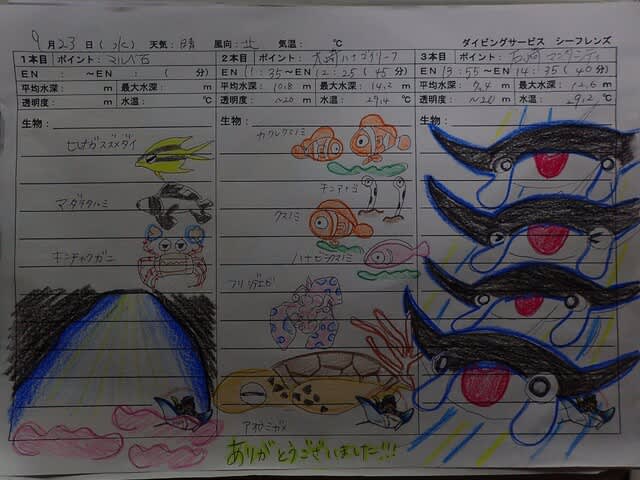 9月23日(水) 天気:晴 風向:北 気温: ℃ ダイビングサービス シーフレンズ
1本目 ポイント:マルベ石
EN : ~EN : ( 分)
平均水深: m 最大水深: m
透明度: m 水温: ℃
生物:
ヒレナガスズメダイ
マダラタルミ
キンチャクガニ
2本目 ポイント:大崎ハナゴイリーフ
EN 11:35~EN 12:25(45分)
平均水深:10.8m 最大水深:14.2m
透明度:~20m 水温:29.4℃
生物:
カクレクマノミ
チンアナゴ
クマノミ
ハナビラクマノミ
フリソデエビ
アオウミガメ
3本目 ポイント:石崎マンタシティ
EN 13:55~EN 14:35(40分)
平均水深:7.4m 最大水深:12.6m
透明度:~20m 水温:29.2℃
生物:
ありがとうございました!!!